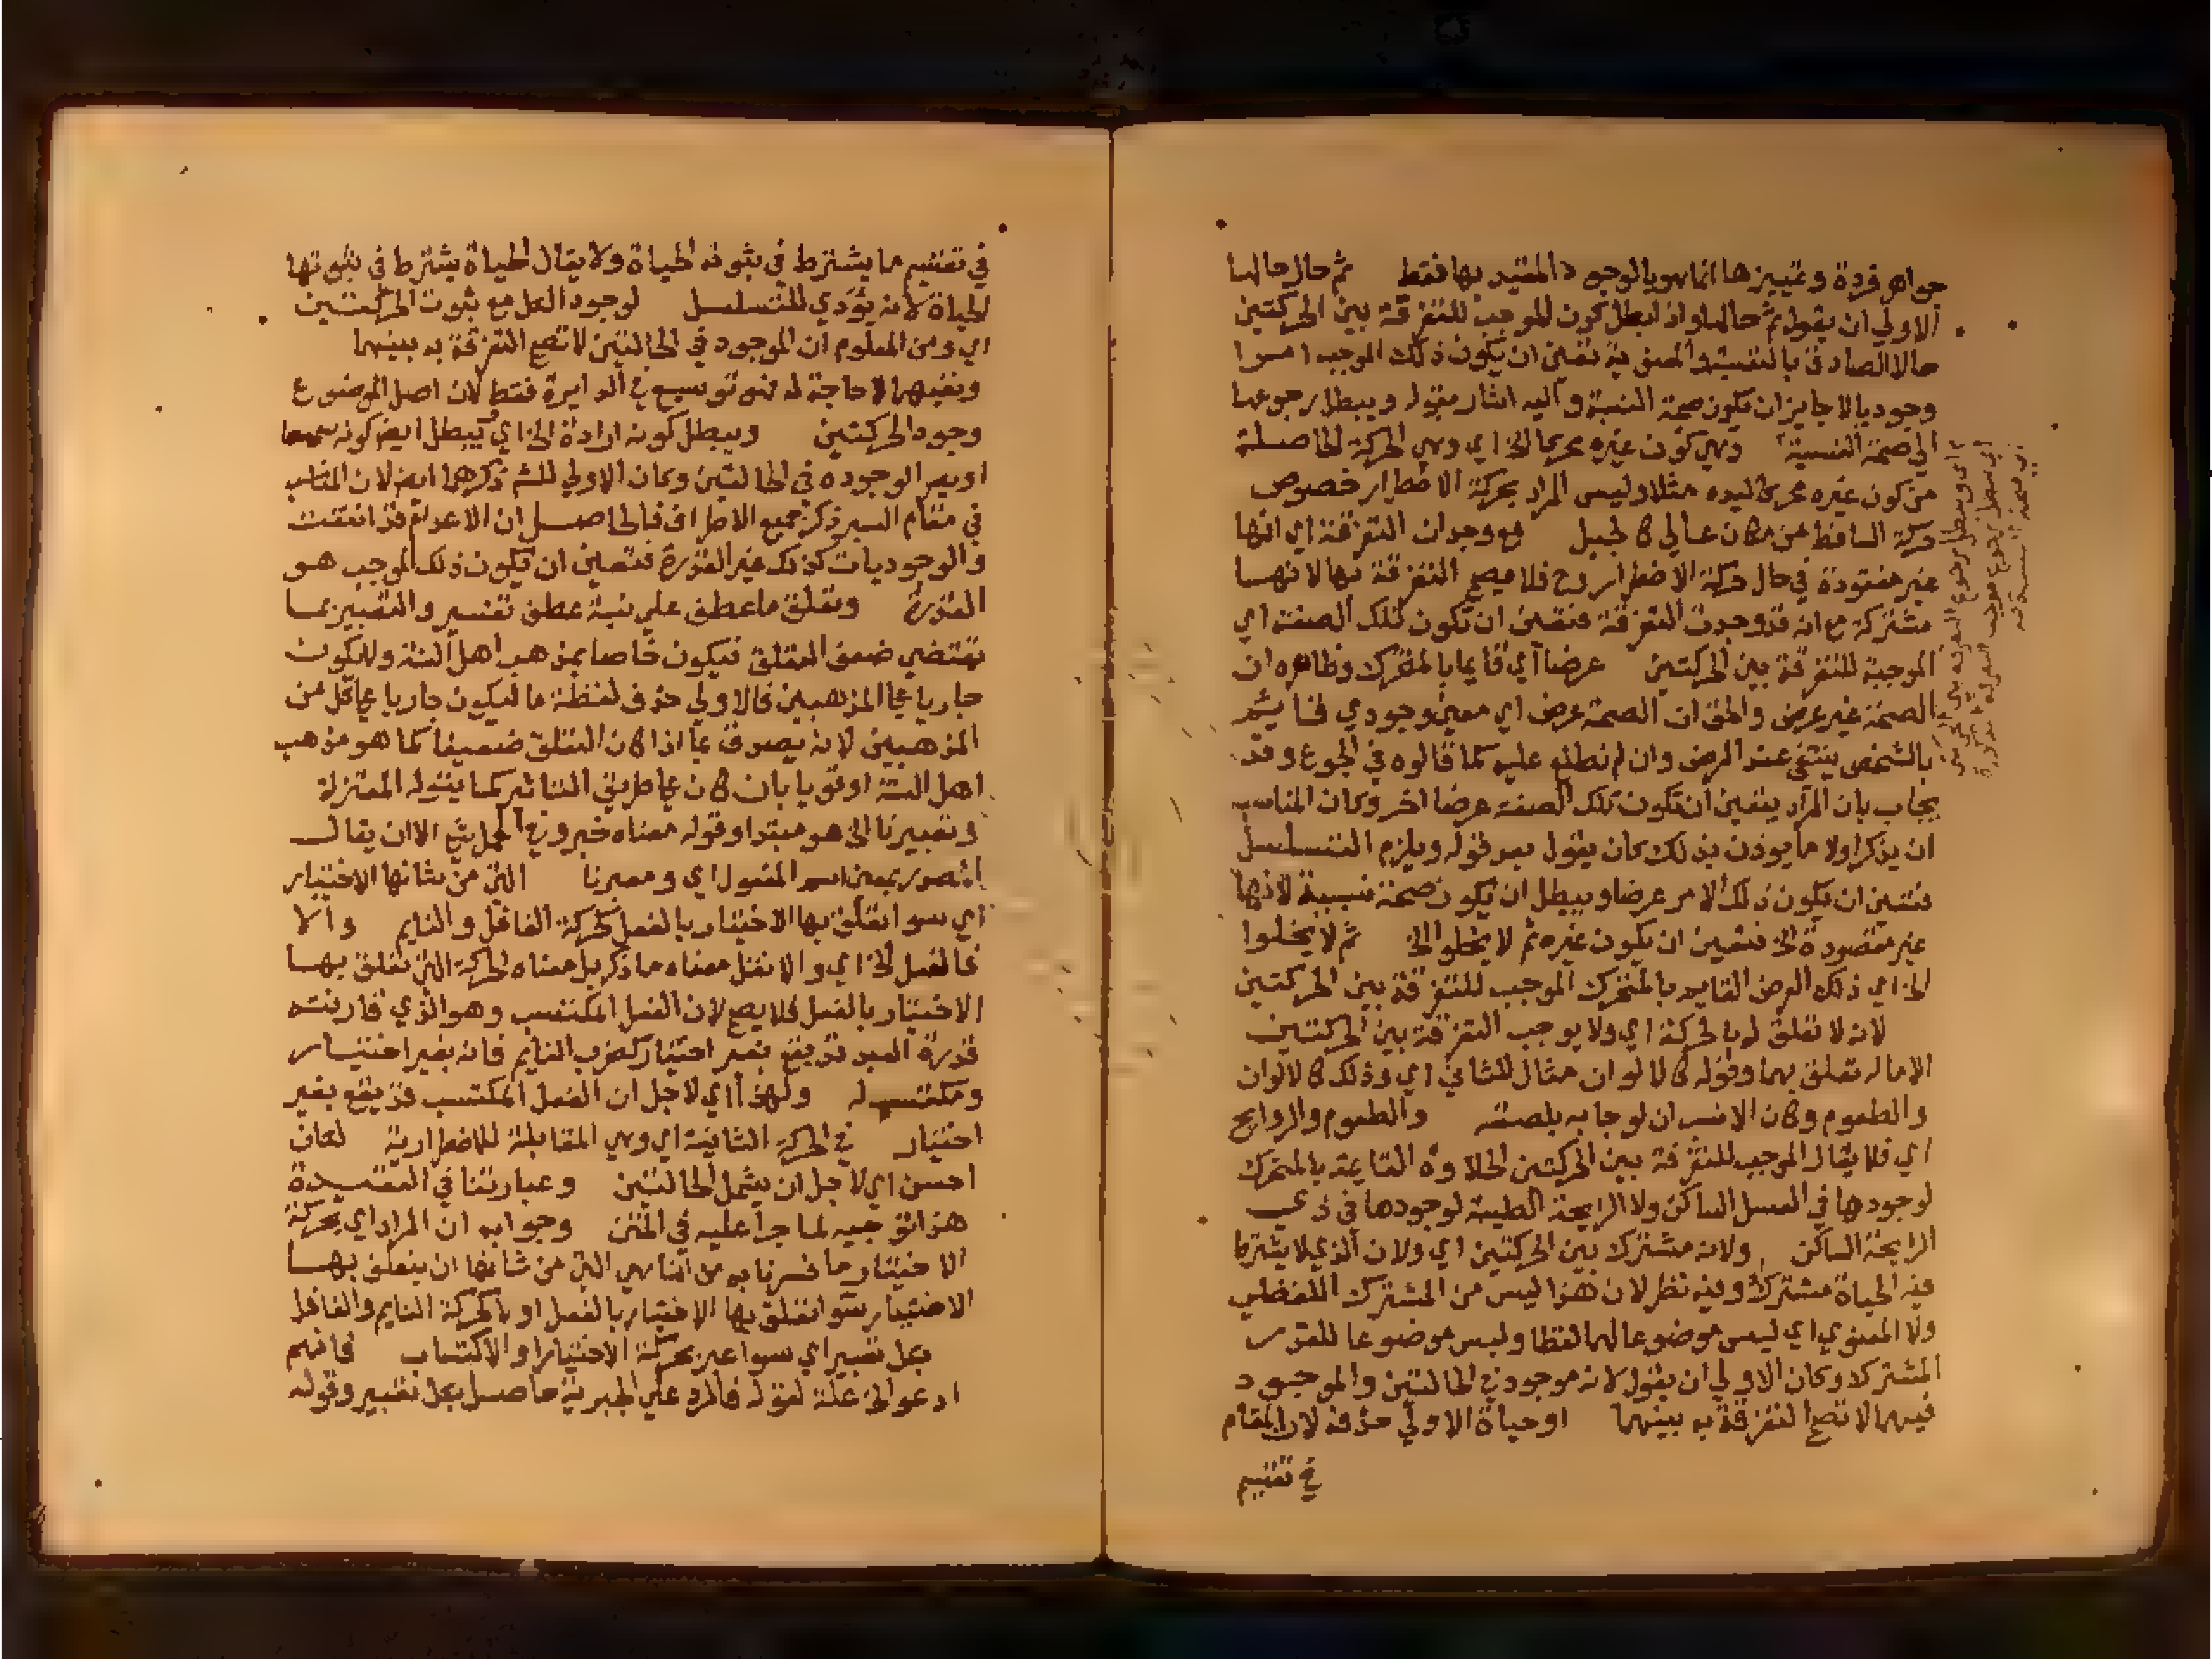 جواهر فردة وتمييزها انما هو بالوجود المقيد بها فقط ثم حال حالها
الاولي ان يقول ثم حالها واذا بطل كون الموجب للتفرقة بين الحركتين
حالا الصادق بالنفسية والمعنوية تعين ان يكون ذلك الموجب امرا
وجوديا لا جايز ان يكون صحة البنية واليه اشار بقوله ويبطل رجوعها
الي صحة البنية وهي كون غيره محركا الخ اي وهي الحركة الحاصلة
من كون غيره محركا ليده مثلا وليس المراد بحركة الاضطرار خصوص
حركة الساقط من مكان عالي كالجبل مع وجدان التفرقة اي انها
غير مفقودة في حال حركة الاضطرار وح فلا يصح التفرقة بها لانها
مشتركة مع انه قد وجدت التفرقة فتعين ان تكون تلك الصفة اي
الموجبة للتفرقة بين الحركتين عرضا اي قايما بالمتحرك وظاهره ان
الصحة غير عرض والحق ان الصحة عرض اي معني وجودي قايم
بالشخص ينتفي عند المرض وان لم نطلع عليه كما قالوه في الجوع وقد
يجاب بان المراد يتعين ان تكون تلك الصفة عرضا اخر وكان المناسب
ان يذكر اولا ما يوذن بذلك كان يقول بعد قوله ويلزم التسلسل
فتعين ان يكون ذلك الامر عرضا ويبطل ان يكون صحة بنية لانها
غير مقصودة الخ فتعين ان يكون غيره ثم لا يخلو الخ ثم لا يخلوا
الخ اي ذلك العرض القايم بالمتحرك الموجب للتفرقة بين الحركتين
لانه لا تعلق له بالحركة اي ولا يوجب التفرقة بين الحركتين
الا ما له تعلق بهما وقوله كالالوان مثال للثاني اي وذلك كالالوان
والطعوم وكان الانسب ان لو جا به بلصقه والطعوم والروايح
اي فلا يقال الموجب للتفرقة بين الحركتين الحلاوة القايمة بالمتحرك
لوجودها في العسل الساكن ولا الرايحة الطيبة لوجودها في ذي
الرايحة الساكن ولانه مشترك بين الحركتين اي ولان الذي لا يشترط
فيه الحياة مشترك وفيه نظر لان هذا ليس من المشترك اللفظي
ولا المعنوي اي ليس موضوعا لهما لفظا وليس موضوعا للقدر
المشترك وكان الاولي ان يقول لانه موجود في الحالتين والموجود
فيهما لا تصح التفرقة به بينهما او حياة الاولي حذفه لان المقام
في تقسيم
في تقسيم ما يشترط في ثبوته الحياة ولا يقال الحياة يشترط في ثبوتها
الحياة لانه يؤدي للتسلسل لوجود العلم مع ثبوت الحركتين
اي ومن المعلوم ان الموجود في الحالتين لا تصح التفرقة به بينهما
ونفيهما لا حاجة له فهو توسيع في الدايرة فقط لان اصل الموضوع
وجود الحركتين ويبطل كونه ارادة الخ اي يبطل ايضا كونه سمعا
او بصرا لوجوده في الحالتين وكان الاولي للش ذكرهما ايضا لان المناسب
في مقام السبر ذكر جميع الاطراف فالحاصل ان الاعدام قد انتفت
والوجوديات كذلك غير القدرة فتعين ان يكون ذلك الموجب هو
القدرة وتعلق ما عطف علي نسبة عطف تفسير والتعبير بما
تقتضي ضعف التعلق فيكون خاصا بمذهب اهل السنة وليكون
جاريا علي المذهبين فالاولي حذف لفظة ما ليكون جاريا علي كل من
المذهبين لانه يصدق بما اذا كان التعلق ضعيفا كما هو مذهب
اهل السنة او قويا بان كان علي طريق التاثير كما يقوله المعتزلة
وتعبيرنا الخ هو مبتدا وقوله معناه خبر وفي الحمل شي الا ان يقال
المصدر بمعني اسم المفعول اي ومعبرنا التي من شانها الاختيار
اي سوا تعلق بها الاختيار بالفعل كحركة الغافل والنايم والا
فالفعل الخ اي والا نقل معناه ما ذكر بل معناه الحركة التي تعلق بها
الاختيار بالفعل فلا يصح لان الفعل المكتسب وهو الذي قارنته
قدرة العبد قد يقع بغير اختيار كضرب النايم فانه بغير اختيار
ومكتسب له ولهذا اي لاجل ان الفعل المكتسب قد يقع بغير
اختيار في الحركة الثانية اي وهي المقابلة للاضطرارية لكان
احسن اي لاجل ان يشمل الحالتين وعبارتنا في العقيدة
هذا توجيه لما جرا عليه في المتن وجوابه ان المراد اي بحركة
الاختيار ما فسرنا به من انها هي التي من شانها ان يتعلق بها
الاختيار سوا تعلق بها الاختيار بالفعل او لا كحركة النايم والغافل
بكل تعبير اي سوا عبر بحركة الاختيار او الاكتساب فانهم
ادعوا الخ علة لقوله فالرد علي الجبرية حاصل بكل تعبير وقوله